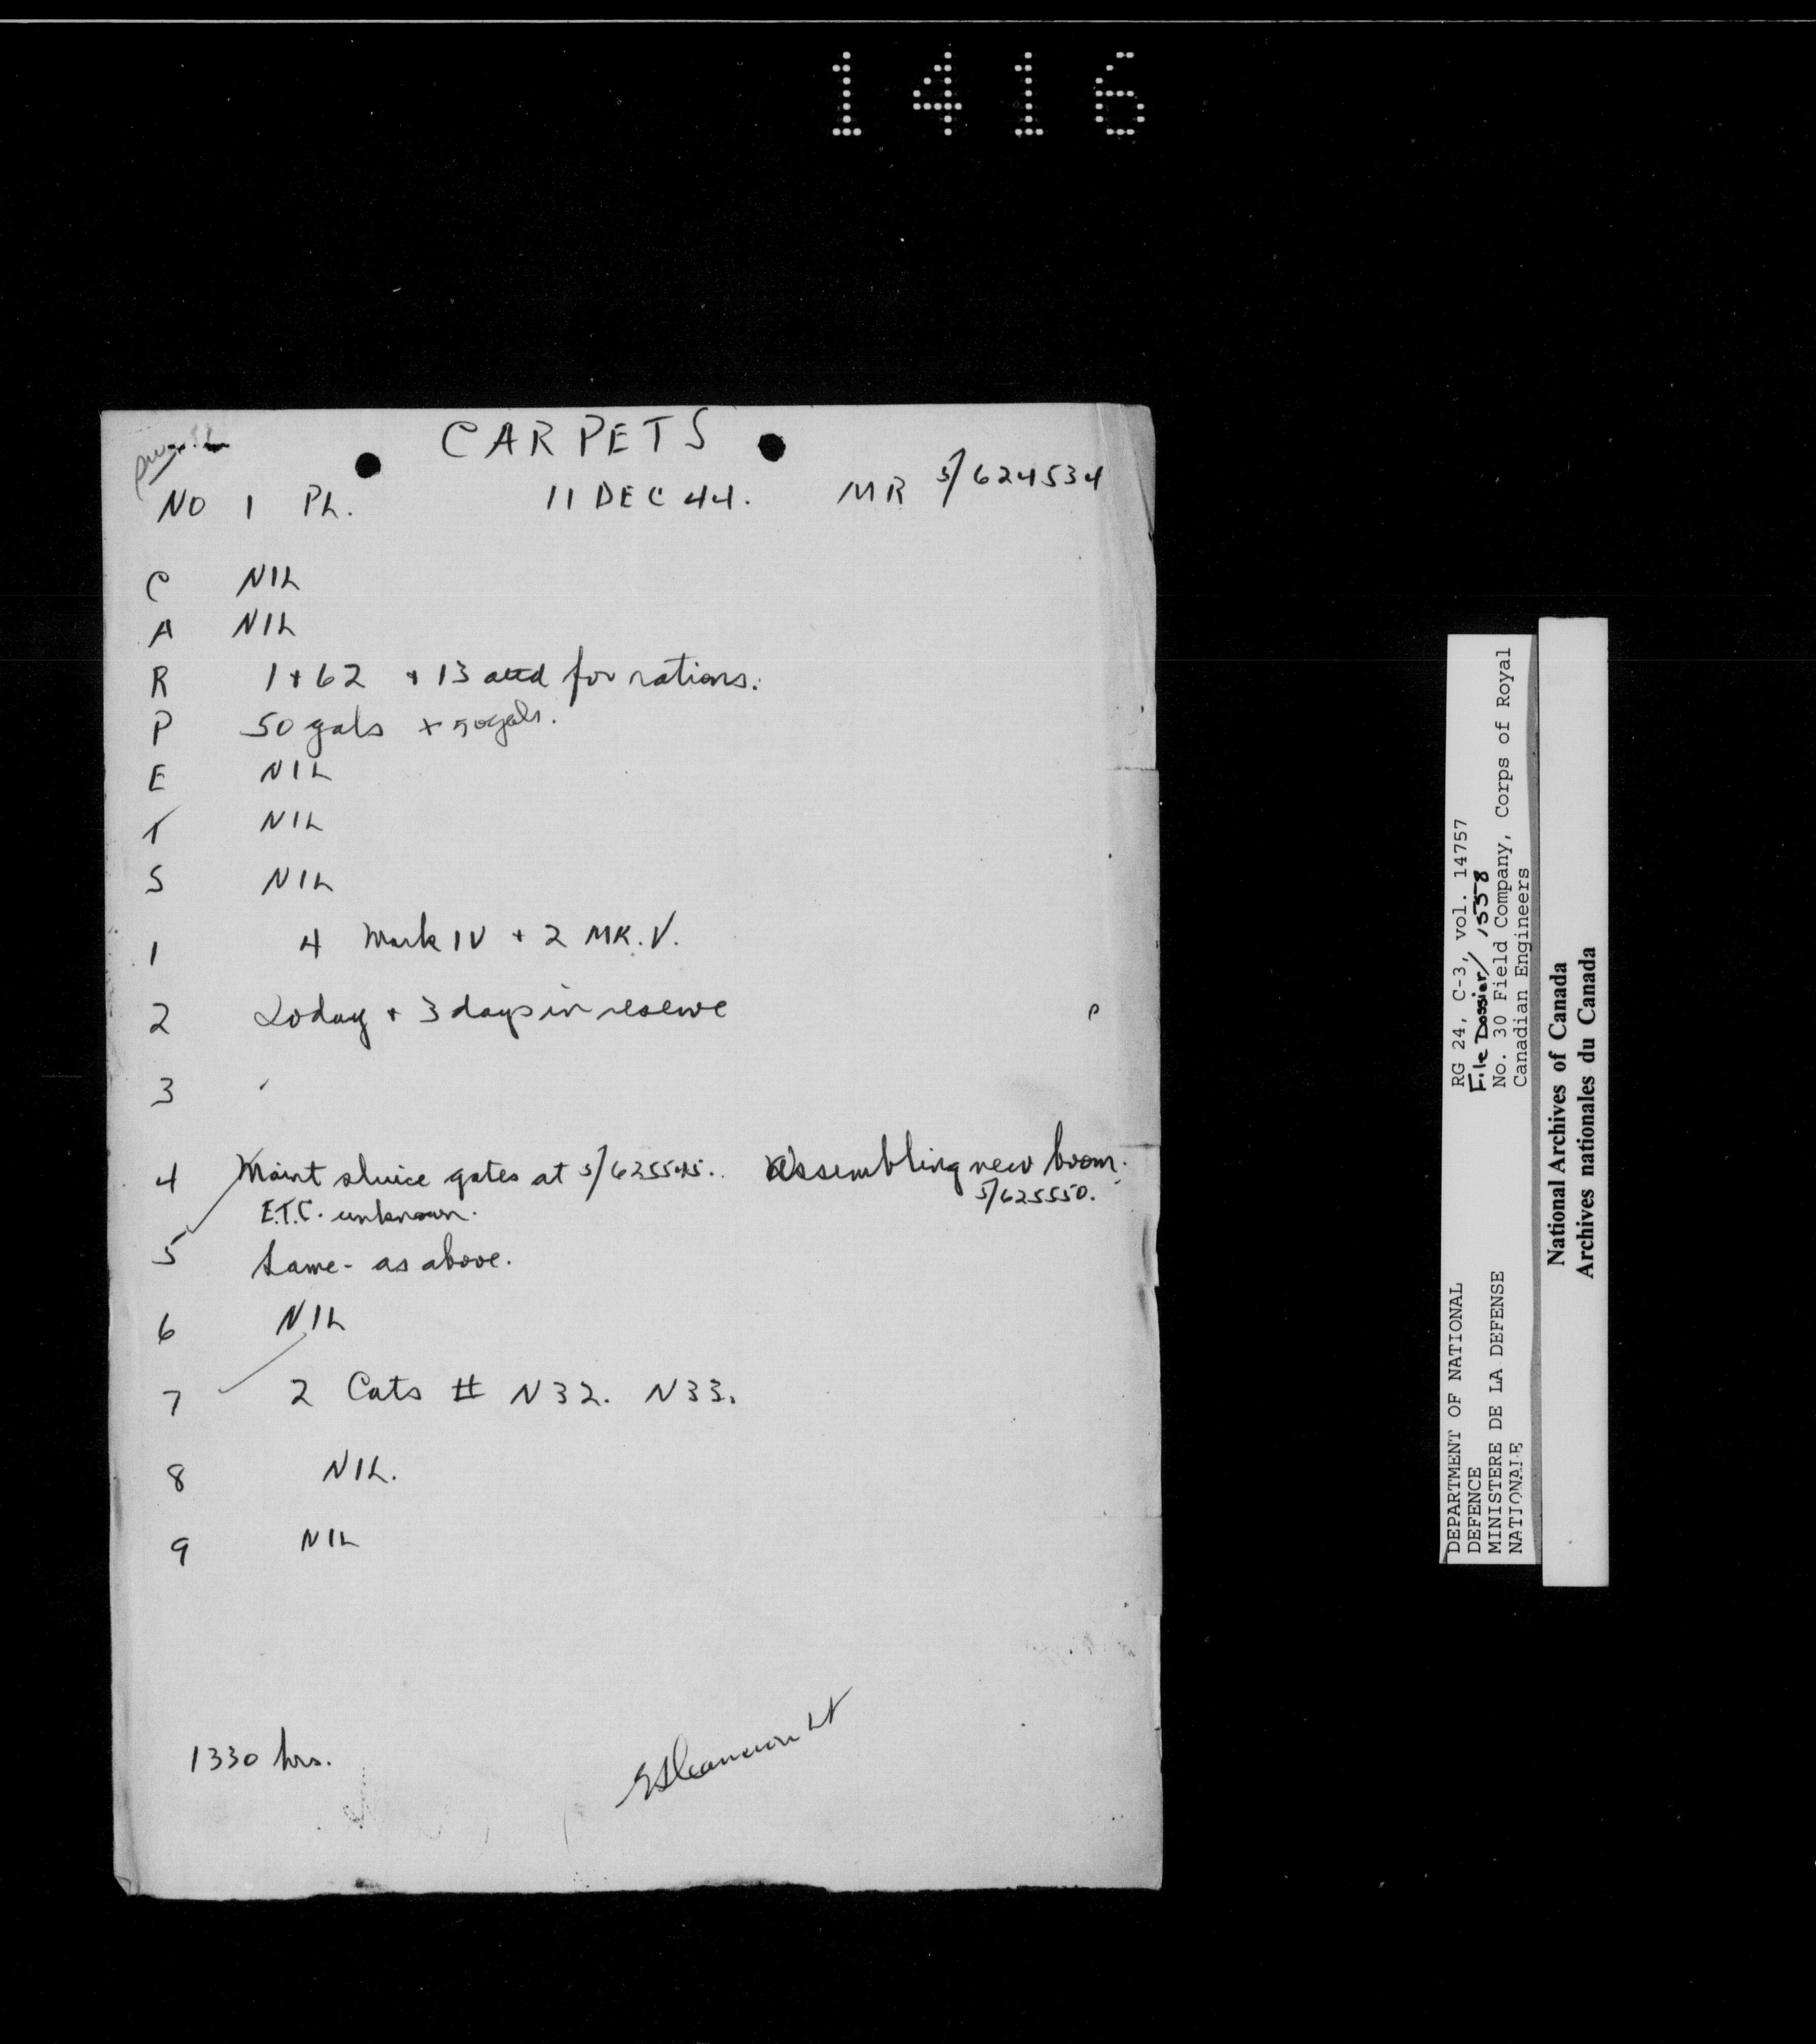 1416
CARPETS
NO 1 PL. 11 DEC 44. MR 5/624534
C NIL
A NIL
R 1+62 + 13 attd for rations.
P 50 gals + 50 gals.
E NIL
T NIL
S NIL
1 4 Mark IV + 2 MK. V.
2 Today + 3 days in reserve
3
4 Maint sluice gates at 5/625545. Assembling new boom.
E.T.C. unknown. 5/625550.
5 Same - as above.
6 NIL
7 2 Cats # N32. N33.
8 NIL.
9 NIL
1330 hrs.
Lt
DEPARTMENT OF NATIONAL
DEFENCE
MINISTERE DE LA DEFENSE
NATIONALE
RG 24, C-3, vol. 14757
File Dossier/ 1558
No. 30 Field Company, Corps of Royal
Canadian Engineers
National Archives of Canada
Archives nationales du Canada